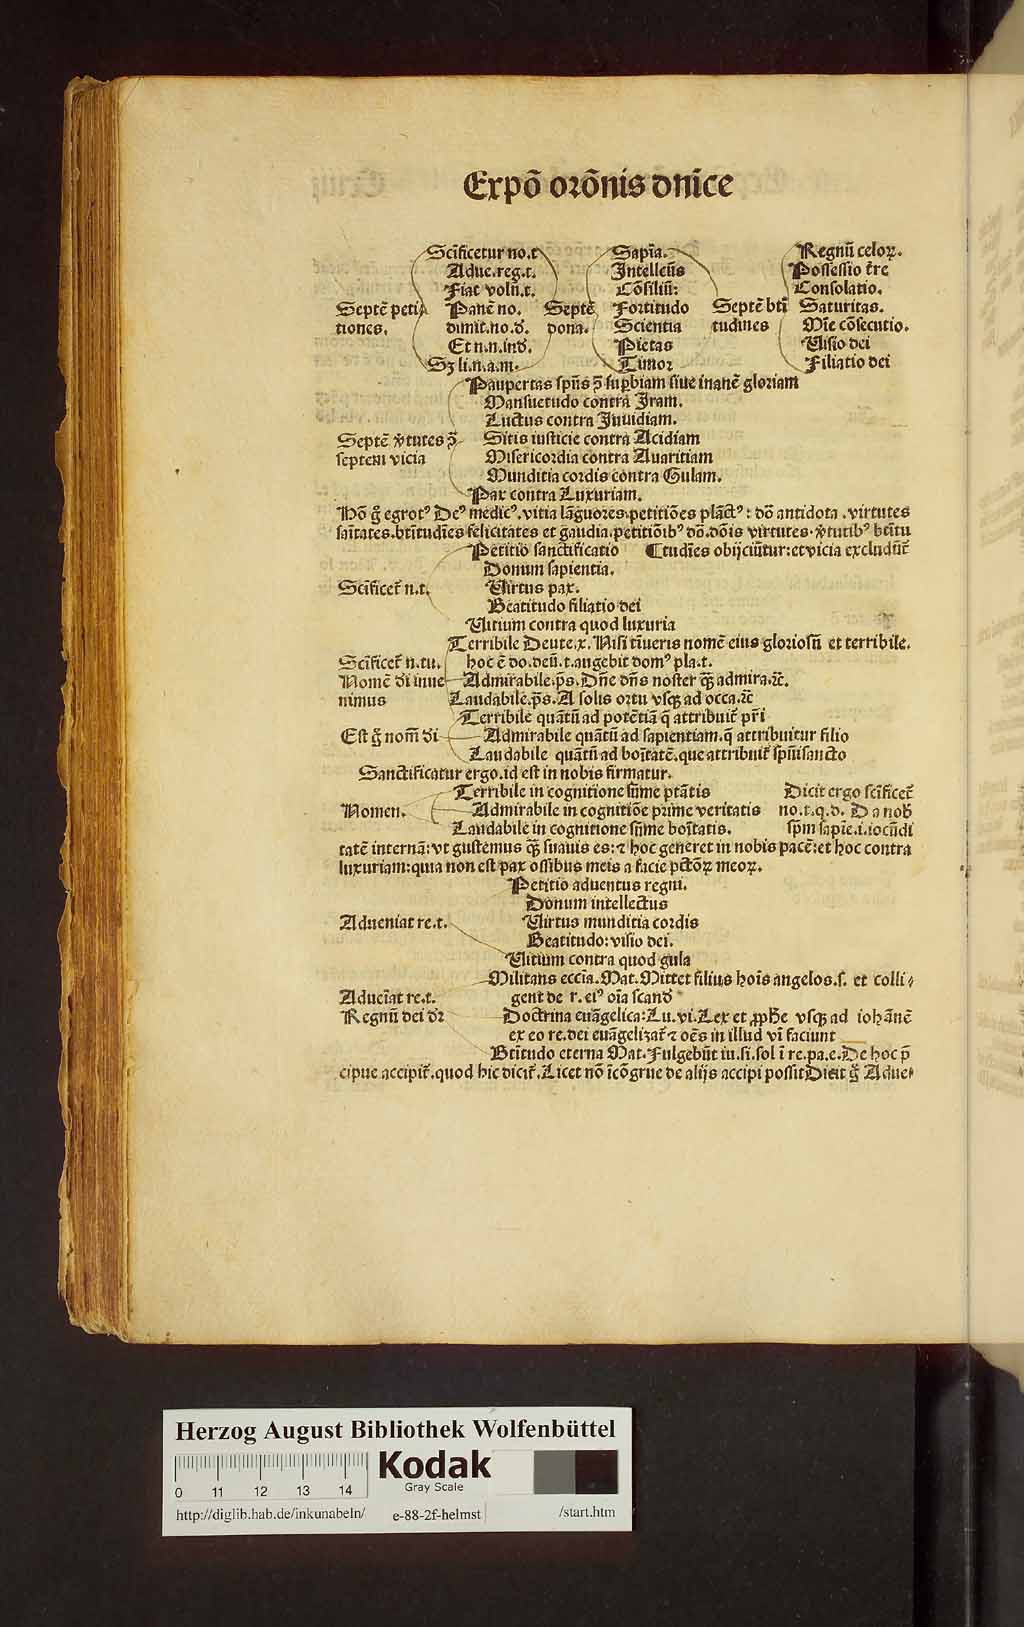 Expō orōnis dnīce
Scīficetur no.t Sapīa. Regnū celoꝝ.
Adue.reg.t. Intellēus Possessio tr̄e
Fiat volūt.t. Cōsiliū: Consolatio.
Septē peti Panē no. Septē Fortitudo Septē bti Saturitas.
tiones. dimit.no.d. dona. Scientia tudines Mīe cōsecutio.
Et n.n.ind. Pietas Visio dei
Sꝫ li.n.a.m. Timor Filiatio dei
Paupertas spūs ↄ̄ superbiam siue inanē gloriam
Mansuetudo contra Iram.
Luctus contra Inuidiam.
Septē v̄tutes ↄ̄ Sitis iusticie contra Acidiam
septem vicia Misericordia contra Auaritiam
Munditia cordis contra Gulam.
Pax contra Luxuriam.
Hō g̊ egrotꝰ Deꝰ medicꝰ, vitia lāguores, petitiōes plāctꝰ: dō antidota. virtutes
saītates. btītudīes felicitates et gaudia. petitiōibꝰ dō. dōis virtutes. v̄tutibꝰ btītu
Petitio sanctificatio ⸿tudīes obijciūtur: et vicia excludūt̄
Donum sapientia.
Scīficet̄ n.t. Virtus pax.
Beatitudo filiatio dei
Vitium contra quod luxuria
Terribile Deute.x. Nisi tīueris nomē eius gloriosū et terribile.
Scīficet̄ n.tu. hoc ē do.deū.t.augebit domꝰ pla.t.
Nomē di inue Admirabile.ps̄. Dn̄e dn̄s noster q̄ꝫ admira.ꝛc̄.
nimus Laudabile.ps̄. A solis ortu vsqꝫ ad occa.ꝛc̄
Terribile quātū ad potētiā q̄ attribuit̄ pr̄i
Est g̊ nom̄ di Admirabile quātū ad sapientiam.q̄ attribuitur filio
Laudabile quātū ad boītatē.que attribuit̄ spūisancto
Sanctificatur ergo.id est in nobis firmatur.
Terribile in cognitione sūme ptātis Dicit ergo scīficet̄
Nomen. Admirabile in cognitiōe prime veritatis no.t.q.d. Da nob̄
Laudabile in cognitione sūme boītatis. spm̄ sapīe.i.iocūdi
tatē internā: vt gustemus q̄ꝫ suauis es: ⁊ hoc generet in nobis pacē: et hoc contra
luxuriam: quia non est pax ossibus meis a facie pctōꝝ meoꝝ.
Petitio aduentus regni.
Donum intellectus
Adueniat re.t. Virtus munditia cordis
Beatitudo: visio dei.
Vitium contra quod gula
Militans eccīa. Mat. Mittet filius hoīs angelos.s. et colli⸗
Aduēiat re.t. gent de r. eiꝰ oīa scand
Regnū dei dr̄ Doctrina euāgelica: Lu.vi. Lex et ꝓphe vsqꝫ ad iohānē
ex eo re.dei euāgelizat̄ ⁊ oēs in illud vī faciunt
Btītudo eterna Mat. Fulgebūt iu.si.sol ī re.pa.e. De hoc p̄
cipue accipit̄.quod hic dicit̄. Licet nō īcōgrue de alijs accipi possit Dicit g̊ Adue⸗
Herzog August Bibliothek Wolfenbüttel
Kodak
Gray Scale
0 11 12 13 14
http://diglib.hab.de/inkunabeln/ e-88-2f-helmst /start.htm